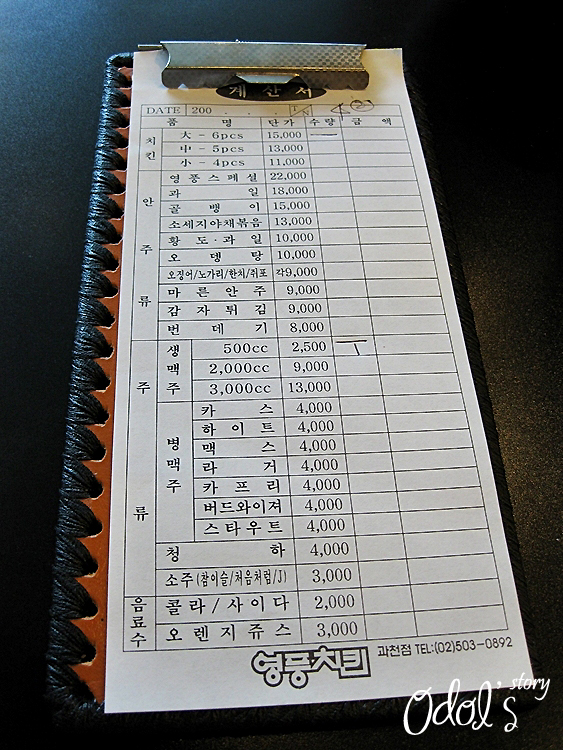 계산서
DATE 200 T/N
품 명 단가 수량 금 액
치킨 大 - 6pcs 15,000
中 - 5pcs 13,000
小 - 4pcs 11,000
안주류 영풍스페셜 22,000
과 일 18,000
골 뱅 이 15,000
소세지야채볶음 13,000
황도·과일 10,000
오 뎅 탕 10,000
오징어/노가리/한치/쥐포 각9,000
마른안주 9,000
감자튀김 9,000
번 데 기 8,000
주류 생맥주 500cc 2,500
2,000cc 9,000
3,000cc 13,000
병맥주 카 스 4,000
하이트 4,000
맥 스 4,000
라 거 4,000
카프리 4,000
버드와이져 4,000
스타우트 4,000
청 하 4,000
소주(참이슬/처음처럼/J) 3,000
음료수 콜라/사이다 2,000
오렌지쥬스 3,000
영풍치킨 과천점 TEL:(02)503-0892
Odol's story